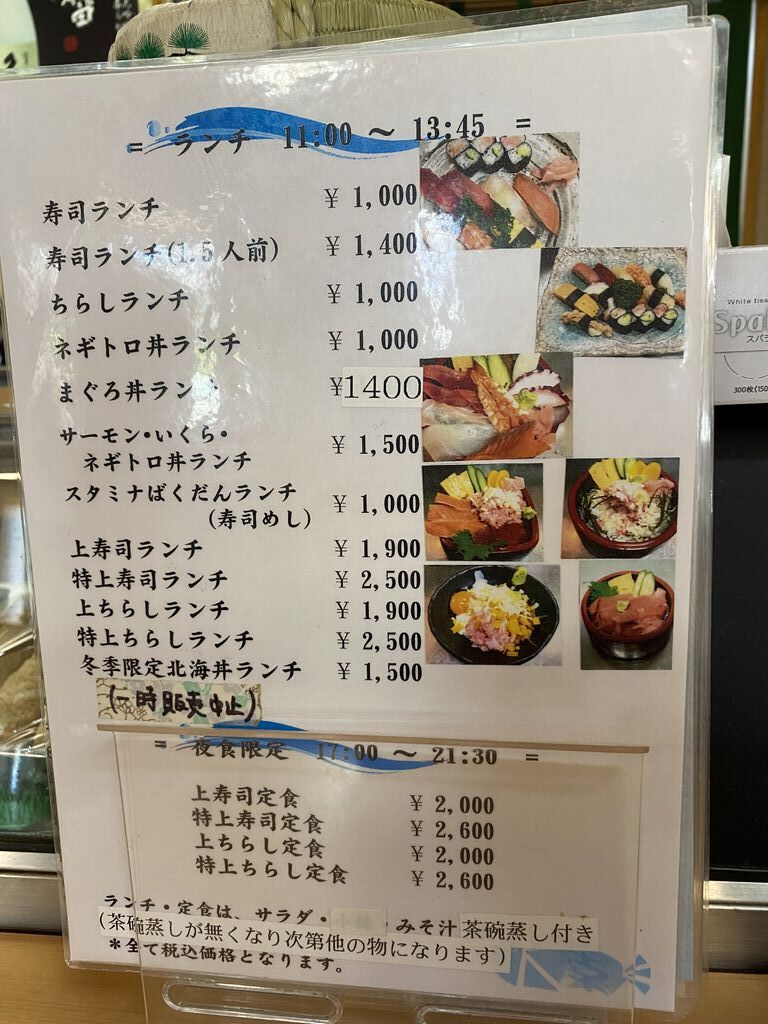 = ランチ 11:00 ～ 13:45 =
寿司ランチ ￥ 1,000
寿司ランチ(1.5人前) ￥ 1,400
ちらしランチ ￥ 1,000
ネギトロ丼ランチ ￥ 1,000
まぐろ丼ランチ ￥1400
サーモン・いくら・
ネギトロ丼ランチ ￥ 1,500
スタミナばくだんランチ
(寿司めし) ￥ 1,000
上寿司ランチ ￥ 1,900
特上寿司ランチ ￥ 2,500
上ちらしランチ ￥ 1,900
特上ちらしランチ ￥ 2,500
冬季限定北海丼ランチ ￥ 1,500
(一時販売中止)
= 夜食限定 17:00 ～ 21:30 =
上寿司定食 ￥ 2,000
特上寿司定食 ￥ 2,600
上ちらし定食 ￥ 2,000
特上ちらし定食 ￥ 2,600
ランチ・定食は、サラダ・ みそ汁 茶碗蒸し付き
(茶碗蒸しが無くなり次第他の物になります)
＊全て税込価格となります。
White tiss
Spa
スパ
300枚(150